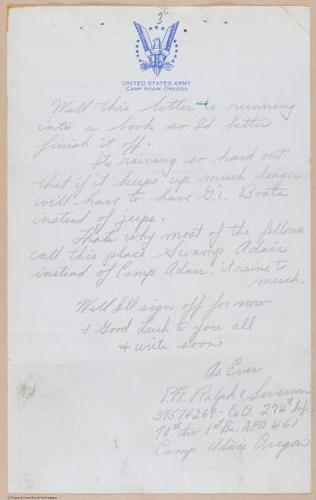 3
UNITED STATES ARMY
CAMP ADAIR, OREGON
Well this letter is running
into a book so I'd better
finish it off.
Its raining so hard out
that if it keeps up much longer
we'll have to have G.I. Boats
instead of jeeps.
Thats why most of the fellows
call this place Swamp Adair
instead of Camp Adair, it rains to
much.
Well I'll sign off for now
& Good Luck to you all
& write soon
As Ever
Pfc. Ralph C
37574269 - Co B 274th Inf
70th div 1st Bn. APO 461
Camp Adair Oregon